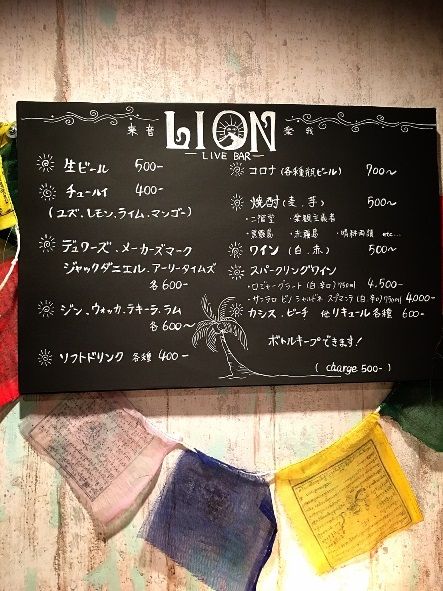 楽音 LION 愛我
LIVE BAR
生ビール 500-
チューハイ 400-
(ユズ.レモン.ライム.マンゴー)
デュワーズ.メーカーズマーク
ジャックダニエル.アーリータイムズ
各600-
ジン.ウォッカ.テキーラ.ラム
各600〜
ソフトドリンク 各種 400-
コロナ(各種瓶ビール) 700〜
焼酎(麦.芋) 500〜
・二階堂
・赤霧島 etc...
ワイン(白.赤) 500〜
スパークリングワイン
(白辛口)750ml 4,500-
(白辛口)750ml 4,000-
カシス.ピーチ 他リキュール各種 600-
ボトルキープできます!
(charge 500-)